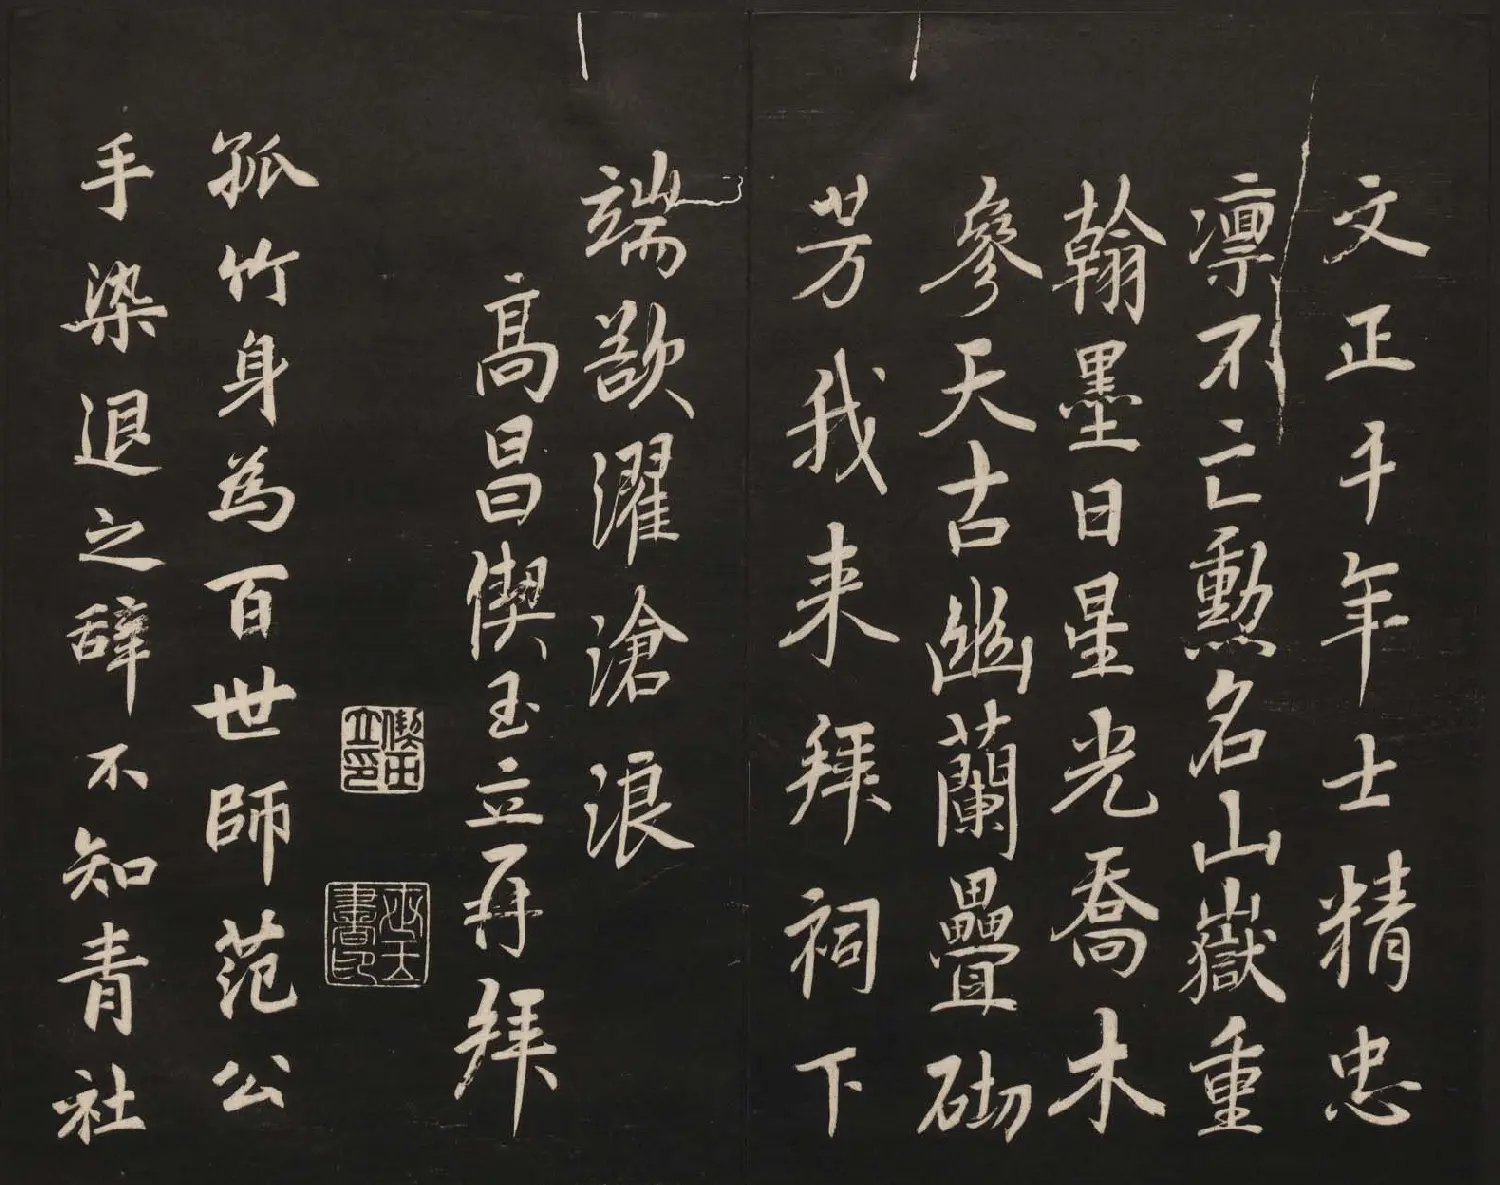 文正千年士精忠
凛不亡勳名山嶽重
翰墨日星光喬木
參天古幽蘭疊砌
芳我来拜祠下
端欲濯滄浪
高昌偰玉立再拜
偰玉立印
孤竹身為百世師范公
手染退之辭不知青社